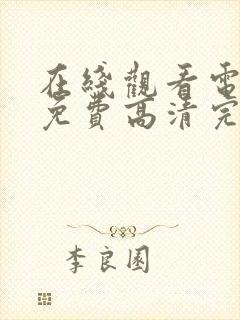 在綫觀看電
免費高清完
李良園